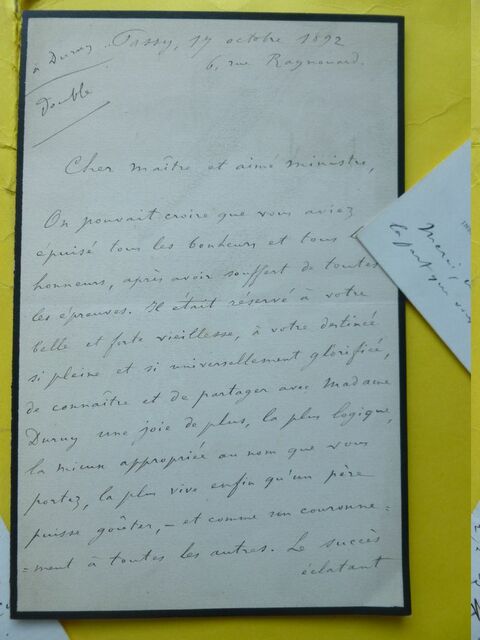 à Duruy
double
Passy, 17 octobre 1892
6, rue Raynouard.
Cher maître et aimé ministre,
On pouvait croire que vous aviez
épuisé tous les bonheurs et tous les
honneurs, après avoir souffert de toutes
les épreuves. Il était réservé à votre
belle et forte vieillesse, à votre destinée
si pleine et si universellement glorifiée,
de connaître et de partager avec Madame
Duruy une joie de plus, la plus logique,
la mieux appropriée au nom que vous
portez, la plus vive enfin qu'un père
puisse goûter, – et comme son couronne=
=ment à toutes les autres. Le succès
éclatant
Merci
que vous